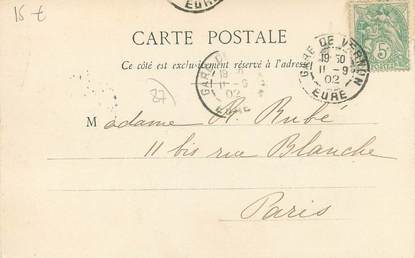 15 €
EURE
CARTE POSTALE
Ce côté est exclusivement réservé à l'adresse
GARE DE VERNON
19 30
11 - 9
02
EURE
5
GARE D
19 30
11 - 9
02
EURE
87
Madame A. Rubé
11 bis rue Blanche
Paris